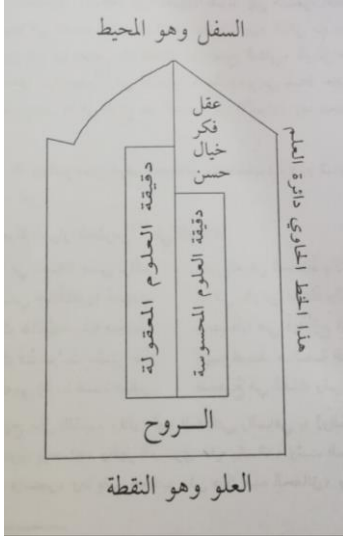 السفل وهو المحيط
عقل
فكر
خيال
حسن
هذا الخط الحاوي دائرة العلم
دقيقة العلوم المحسوسة
دقيقة العلوم المعقولة
الـــروح
العلو وهو النقطة